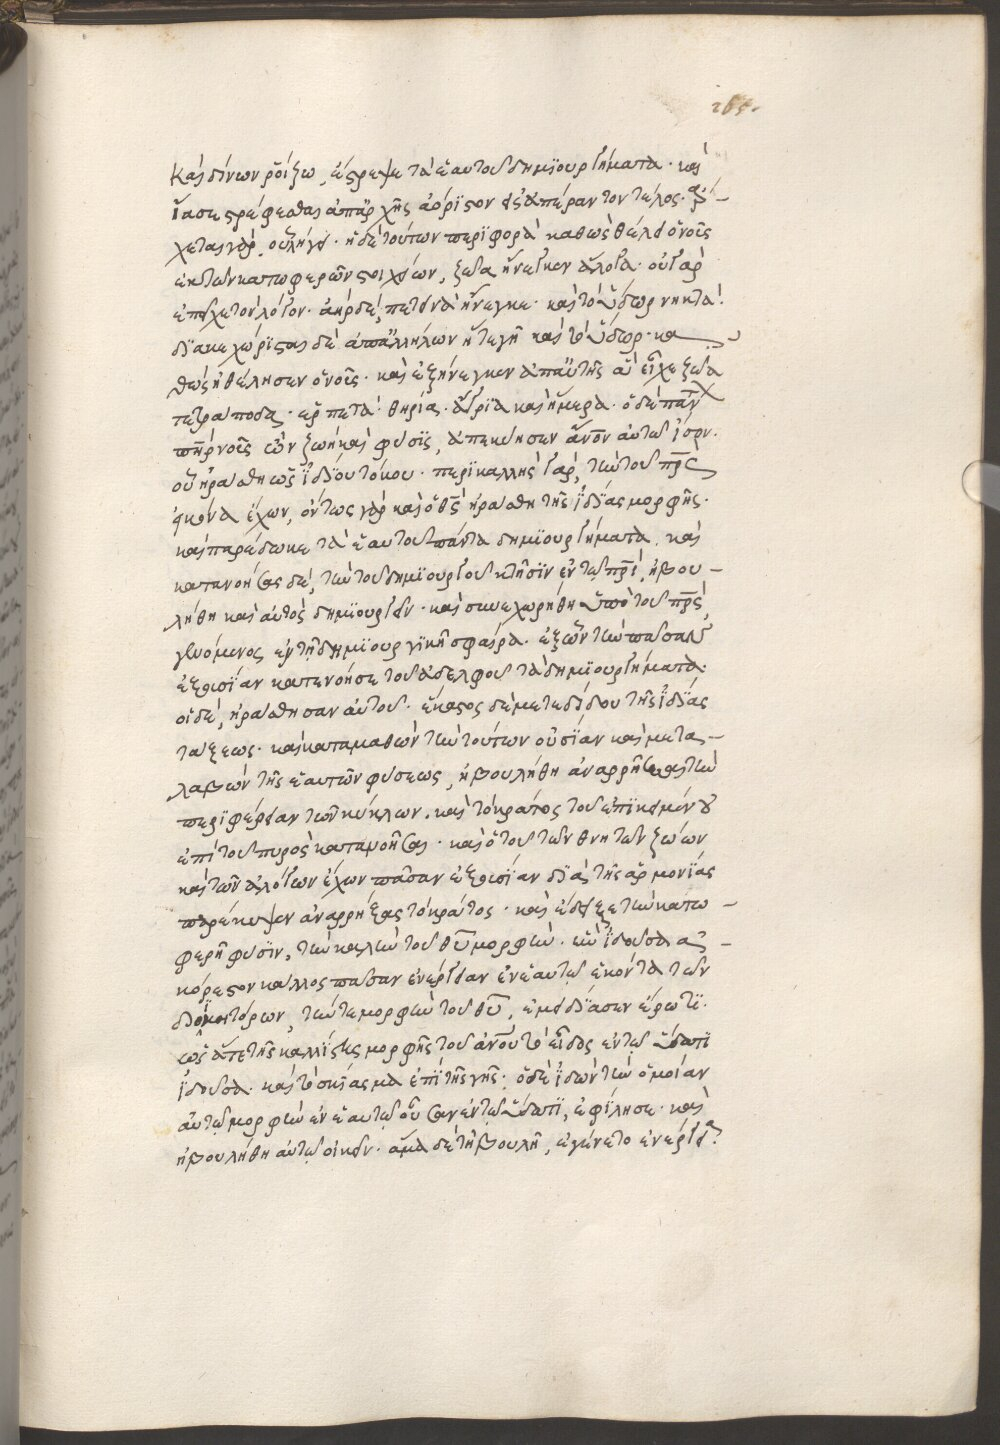 265.
καὶ δίνων ῥοίζω, ἔστρεψε τὰ ἑαυτοῦ δημϊουργήματα· καὶ
ἴασε στρέφεσθαι ἀπ' ἀρχῆς ἀορίστου εἰς ἀπέραντον τέλος· ἄρ-
χεται γὰρ, οὗ λήγει· ἡ δὲ τούτων περϊφορὰ καθὼς θέλει ὁ νοῦς
ἐκ τῶν κατωφερῶν στοιχείων, ζῶα ἤνεγκεν ἄλογα· οὐ γὰρ
ἐπεῖχε τὸν λόγον· ἀὴρ δὲ, πετεινὰ ἤνεγκε· καὶ τὸ ὕδωρ νηκτά·
δϊακεχώρϊσται δὲ ἀπ' ἀλλήλων ἥ τε γῆ καὶ τὸ ὕδωρ· κα
θὼς ἠθέλησεν ὁ νοῦς· καὶ ἐξήνεγκεν ἀπ' αὐτῆς ἃ εἶχε ζῶα
τετράποδα· ἑρπετά· θηρία· ἄγρϊα καὶ ἥμερα· ὁ δὲ πάντων
πηρ νοῦς ὢν ζωὴ καὶ φύσϊς, ἀπεκύησεν ἄνον αὐτῶ ἴσον·
οὗ ἠράσθη ὡς ἰδΐου τόκου· περϊκαλλὴς γὰρ, τὴν τοῦ πρς
εἰκόνα ἔχων, ὄντως γὰρ καὶ ὁ θς ἠράσθη τῆς ἰδΐας μορφῆς·
καὶ παρέδωκε τὰ ἑαυτοῦ πάντα δημϊουργήματα, καὶ
κατανοήσας δὲ, τὴν τοῦ δημϊουργοῦ κτῆσϊν ἐν τῶ πρὶ, ἠβου-
λήθη καὶ αὐτὸς δημϊουργεῖν· καὶ συνεχωρήθη ὑπὸ τοῦ πρς,
γενόμενος ἐν τῆ δημϊουργϊκῆ σφαίρα· ἕξων τὴν πᾶσαν
ἐξουσΐαν κατενόησε τοῦ ἀδελφοῦ τὰ δημϊουργήματα·
οἱ δὲ, ἠράσθησαν αὐτοῦ· ἕκαστος δὲ μετεδίδου τῆς ἰδΐας
τάξεως· καὶ καταμαθὼν τὴν τούτων οὐσΐαν καὶ μετα-
λαβὼν τῆς ἑαυτῶν φύσεως, ἠβουλήθη ἀναρρῆξαι τὴν
περϊφέρειαν τῶν κύκλων· καὶ τὸ κράτος τοῦ ἐπϊκειμένου
ἐπὶ τοῦ πυρὸς κατανοῆσαι· καὶ ὁ τοῦ τῶν θνητῶν ζώων
καὶ τῶν ἀλόγων ἔχων πᾶσαν ἐξουσΐαν δϊὰ τῆς ἁρμονΐας
παρέκυψεν ἀναρρήξας τὸ κράτος· καὶ ἔδειξε τὴν κατω-
φερῆ φύσιν, τὴν καλὴν τοῦ θυ μορφήν· ἣν ἰδοῦσα ἀ-
κόρεστον κάλλος πᾶσαν ἐνέργειαν ἐν ἑαυτῶ ἔχοντα τῶν
διοικητόρων, τήν τε μορφὴν τοῦ θυ, ἐμειδΐασεν ἔρωτϊ·
ὡς ἅτε τῆς καλλίστης μορφῆς τοῦ ἀνου τὸ εἶδος ἐν τῶ ὕδατϊ
ἰδοῦσα· καὶ τὸ σκΐασμα ἐπὶ τῆς γῆς· ὁ δὲ ἰδὼν τὴν ὁμοίαν
αὐτῶ μορφὴν ἐν ἑαυτῶ οὖσαν ἐν τῶ ὕδατϊ, ἐφίλησε· καὶ
ἠβουλήθη αὐτῶ οἰκεῖν· ἅμα δὲ τῆ βουλῆ, ἐγένετο ἐνέργεια